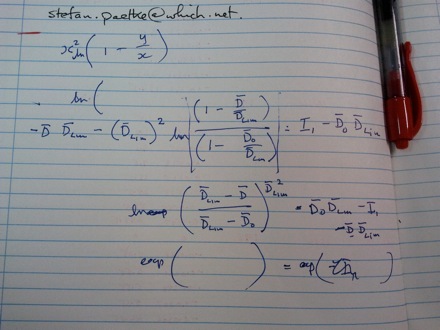 stefan.paetke@which.net.
x² ln(1 - y/x)
ln(
-D̄ D̄Lim - (D̄Lim)² ln[(1 - D̄/D̄Lim)/(1 - D̄₀/D̄Lim)] = I₁ - D̄₀ D̄Lim
((D̄Lim - D̄)/(D̄Lim - D̄₀))^D̄Lim² = D̄₀ D̄Lim - I₁
- D̄ D̄Lim
exp( ) = exp( )